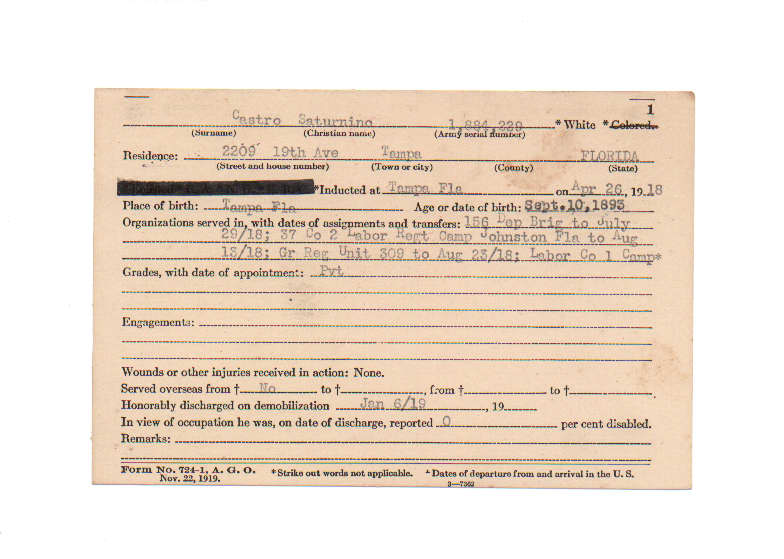 1
Castro Saturnino 1,884,229 * White * Colored.
(Surname) (Christian name) (Army serial number)
Residence: 2209 19th Ave Tampa FLORIDA
(Street and house number) (Town or city) (County) (State)
*Inducted at Tampa Fla on Apr 26, 19 18
Place of birth: Tampa Fla Age or date of birth: Sept.10,1893
Organizations served in, with dates of assignments and transfers: 156 Dep Brig to July
29/18; 37 Co 2 Labor Regt Camp Johnston Fla to Aug
13/18; Gr Reg Unit 309 to Aug 23/18; Labor Co 1 Camp*
Grades, with date of appointment: Pvt
Engagements:
Wounds or other injuries received in action: None.
Served overseas from † No to †, from † to †
Honorably discharged on demobilization Jan 6/19, 19
In view of occupation he was, on date of discharge, reported 0 per cent disabled.
Remarks:
Form No. 724-1, A. G. O. *Strike out words not applicable. † Dates of departure from and arrival in the U. S.
Nov. 22, 1919. 3—7363